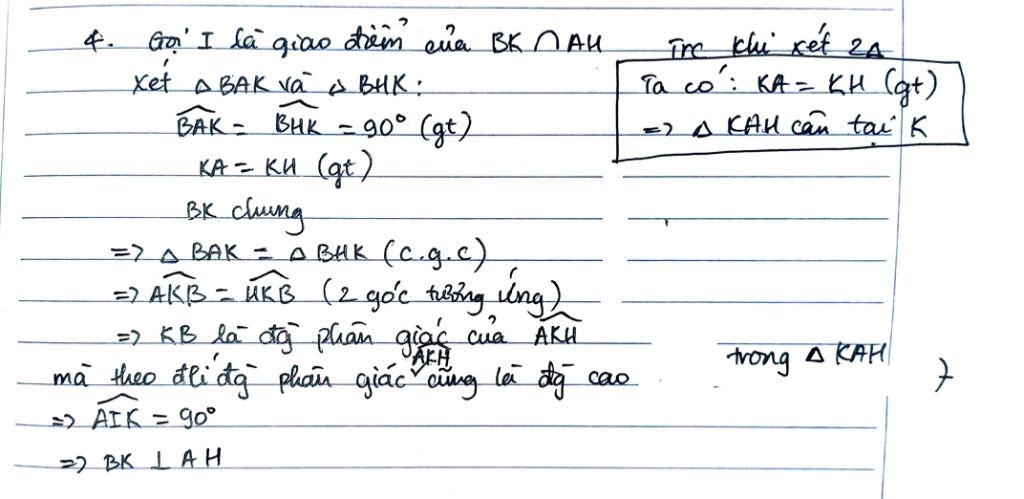 4. Gọi I là giao điểm của BK ∩ AH
Trc khi xét 2Δ
Xét Δ BAK và Δ BHK:
Ta có: KA = KH (gt)
=> Δ KAH cân tại K
BAK = BHK = 90° (gt)
KA = KH (gt)
BK chung
=> Δ BAK = Δ BHK (c.g.c)
=> AKB = HKB (2 góc tương ứng)
=> KB là đg phân giác của AKH
trong Δ KAH
mà theo đlí đg phân giác AKH cũng là đg cao
=> AIK = 90°
=> BK ⊥ AH